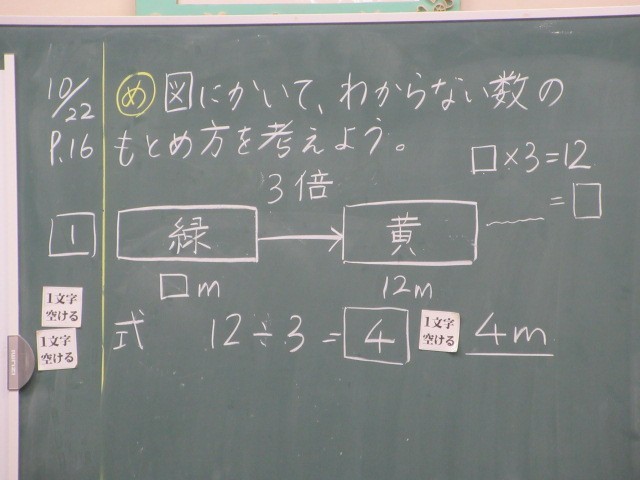 10/22
P.16
め 図にかいて、わからない数の
もとめ方を考えよう。
□×3=12
＿＝□
3倍
1
緑
黄
□m
12m
1文字
空ける
1文字
空ける
式 12÷3=4
1文字
空ける
4m